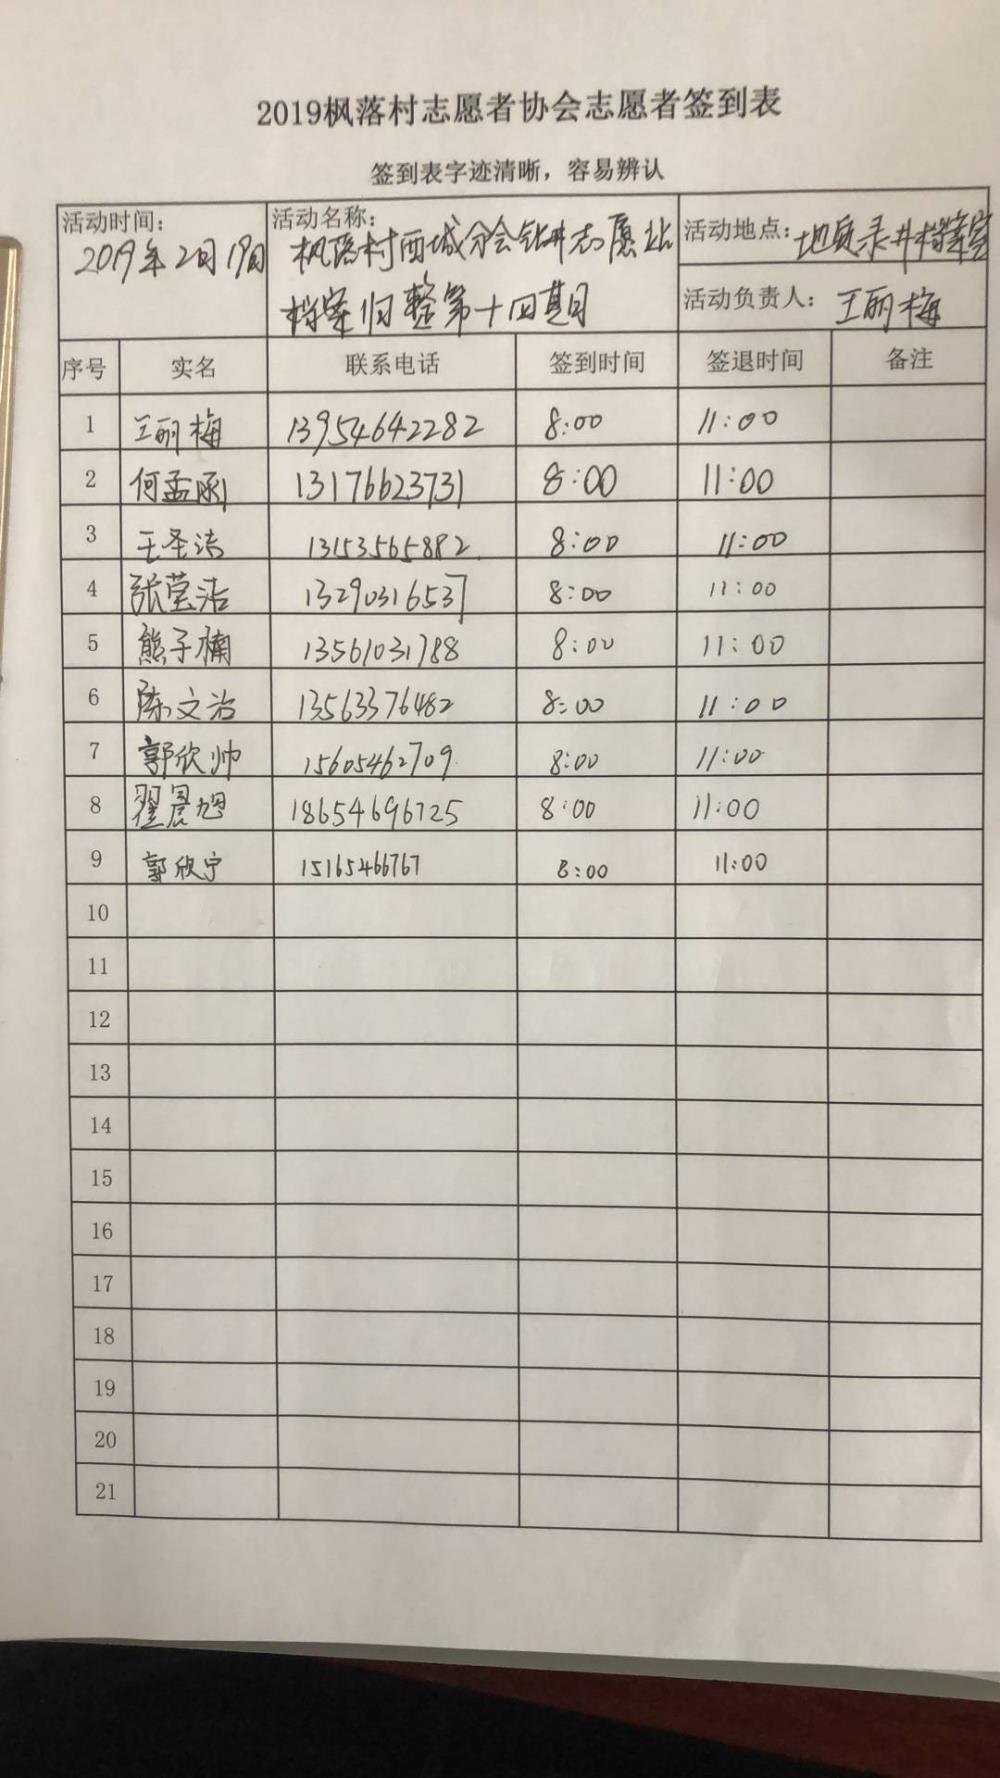 2019枫落村志愿者协会志愿者签到表
签到表字迹清晰，容易辨认
活动时间： 2019年2月19日
活动名称： 枫落村西城分会钻井志愿站
档案归整第十四期
活动地点：地质录井档案室
活动负责人：王丽梅
序号 实名 联系电话 签到时间 签退时间 备注
1 王丽梅 13954642282 8:00 11:00
2 何孟涵 13176623731 8:00 11:00
3 王圣洁 13153565882 8:00 11:00
4 张莹浩 13290316537 8:00 11:00
5 熊子楠 13561031788 8:00 11:00
6 陈文治 13563376482 8:00 11:00
7 郭欣帅 15605462709 8:00 11:00
8 翟晨旭 18654696725 8:00 11:00
9 郭欣宁 15165466767 8:00 11:00
10
11
12
13
14
15
16
17
18
19
20
21